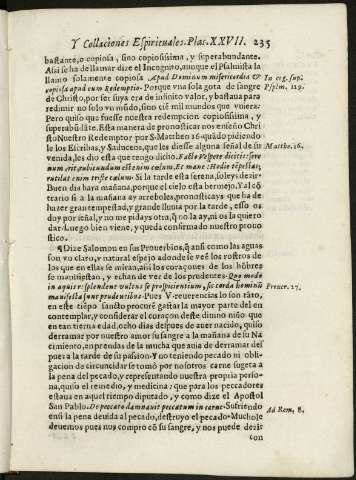 Y Collaciones Espirituales. Plac. XXVII. 235
bastante, o copiosa, sino copiosissima, y superabundante.
Assi se ha de llamar dize el Incognito, aunque el Psalmista la
llamo solamente copiosa Apud Dominum misericordia &
copiosa apud eum Redemptio. Porque vna sola gota de sangre
de Christo, por ser suya era de infinito valor, y bastaua para
redimir no solo vn mũdo, sino cië mil mundos que vuiera.
Pero quiso que fuesse nuestra redempcion copiosissima, y
superabũdāte. Esta manera de pronosticar nos enseño Chri
sto Nuestro Redemptor por S. Mattheo 16 quãdo pidiendo
le los Escribas, y Saduceos, que les diesse alguna señal de su
venida, les dio esta que tengo dicho. Facto Vespere dicitis: sere
num erit, rubicundum est enim cælum, Et mane: Hodie tẽpestas;
rutilat enim triste cælum. Si la tarde esta serena, soleys dezir.
Buen dia hara mañana, porque el cielo esta bermejo. Y al cõ
trario si a la mañana ay arreboles, pronosticays que ha de
hazer gran tempestad, y grande lluuia por la tarde, esso os
doy por señal, y no me pidays otra, q̃ no la ay, ni os la quiero
dar. Luego bien viene, y queda confirmado nuestro prono
stico.
¶Dize Salomon en sus Prouerbios, q̃ ansi como las aguas
son vn claro, y natural espejo adonde se veẽ los rostros de
los que en ellas se miran, ansi los coraçones de los hõbres
se manifiestan, y echan de ver de los prudentes. Quo modo
in aquis resplendent vultus se prospicientium, sic corda hominũ
manifesta sunt prudentibus. Pues V. reuerencias lo son tãto,
en este tiẽpo sancto procurẽ gastar la mayor parte del en
contemplar, y considerar el coraçon deste diuino niño que
en tan tierna edad, ocho dias despues de auer nacido, quiso
derramar por nuestro amor su sangre a la mañana de su Na
cimiento, en prendas de la mucha que auia de derramar des
pues a la tarde de su passion. Y no teniendo pecado ni obli-
gacion de circuncidar se tomò por nosotros carne sugeta a
la pena del pecado, y representando nuestra propria perso-
na, quiso el remedio, y medicina: que para los peccadores
estaua en aquel tiempo diputada, y como dize el Apostol
San Pablo. De peccato damnauit peccatum in carne. Sufriendo
ensi la pena deuida al pecado, destruyo el pecado. Mucho le
deuemos pues nos compro cõ su sangre, y nos puede dezir
con
In eog. sup.
Psalm. 129.
Matthæ. 16.
Prouer. 27.
Ad Rom, 8.